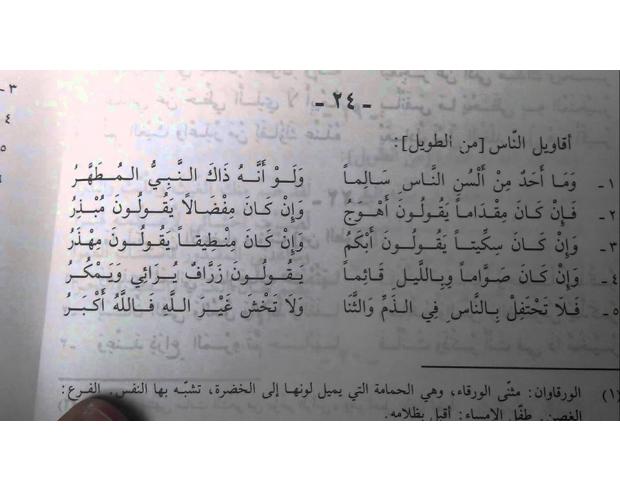 - ٢٤ -
أقاويل النّاس [من الطويل]:
١ - وَمَا أَحَدٌ مِنْ أَلْسُنِ النَّاسِ سَالِماً وَلَوْ أَنَّهُ ذَاكَ النَّبِيُّ المُطَهَّرُ
٢ - فَإِنْ كَانَ مِقْدَاماً يَقُولُونَ أَهْوَجُ وَإِنْ كَانَ مِفْضَالاً يَقُولُونَ مُبْذِرُ
٣ - وَإِنْ كَانَ سِكِّيتاً يَقُولُونَ أَبْكَمُ وَإِنْ كَانَ مِنْطِيقاً يَقُولُونَ مِهْذَرُ
٤ - وَإِنْ كَانَ صَوَّاماً وَبِاللَّيلِ قَائِماً يَقُولُونَ زَرَّافٌ يُرَائِي وَيَمْكُرُ
٥ - فَلَا تَحْتَفِلْ بِالنَّاسِ فِي الذَّمِّ وَالثَّنَا وَلَا تَخْشَ غَيْرَ اللَّهِ فَاللَّهُ أَكْبَرُ
(١) الورقاوان: مثنّى الورقاء، وهي الحمامة التي يميل لونها إلى الخضرة، تشبّه بها النفس. الفرع:
الغصن. طفّل الإمساء: أقبل بظلامه.
٣ -
٤
٥